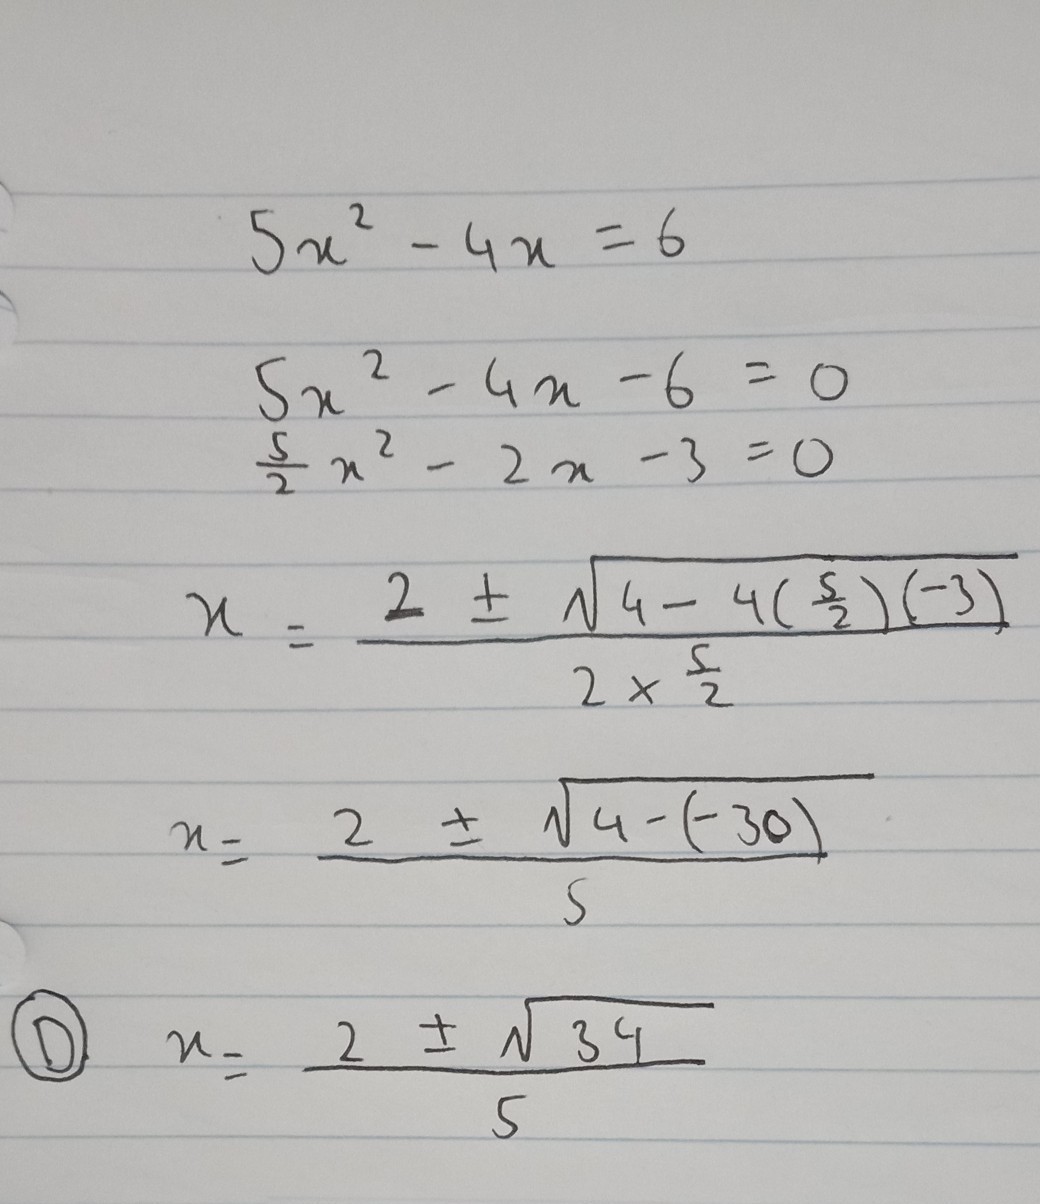 5x² - 4x = 6
5x² - 4x - 6 = 0
5/2 x² - 2x - 3 = 0
x = (2 ± √(4 - 4(5/2)(-3))) / (2 × 5/2)
x = (2 ± √(4 - (-30))) / 5
Ⓓ x = (2 ± √34) / 5